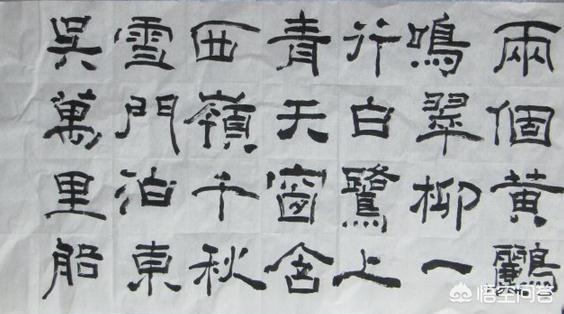 兩個黃鸝
鳴翠柳一
行白鷺上
青天窗含
西嶺千秋
雪門泊東
吳萬里船
悟空问答